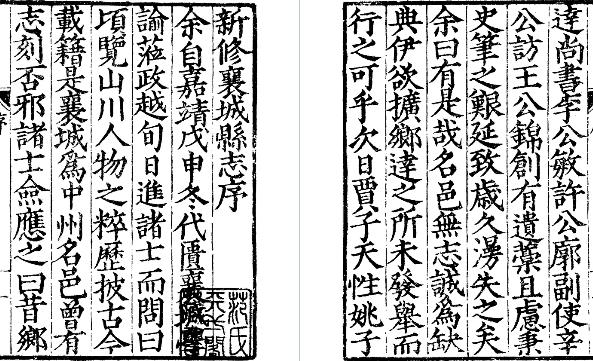 新修襄城縣志序
余自嘉靖戊申冬代匱襄城
諭蒞政越旬日進諸士而問曰
頃覽山川人物之粹歷披古今
載籍是襄城爲中州名邑曾有
志刻否邪諸士僉應之曰昔鄉
達尚書李公敏許公廓副使辛
公訪王公錦創有遺藁且慮秉
史筆之艱延致歲久漫失之矣
余曰有是哉名邑無志誠爲缺
典伊欲擴鄉達之所未發舉而
行之可乎次日賈子天性姚子
范氏
天一閣
序